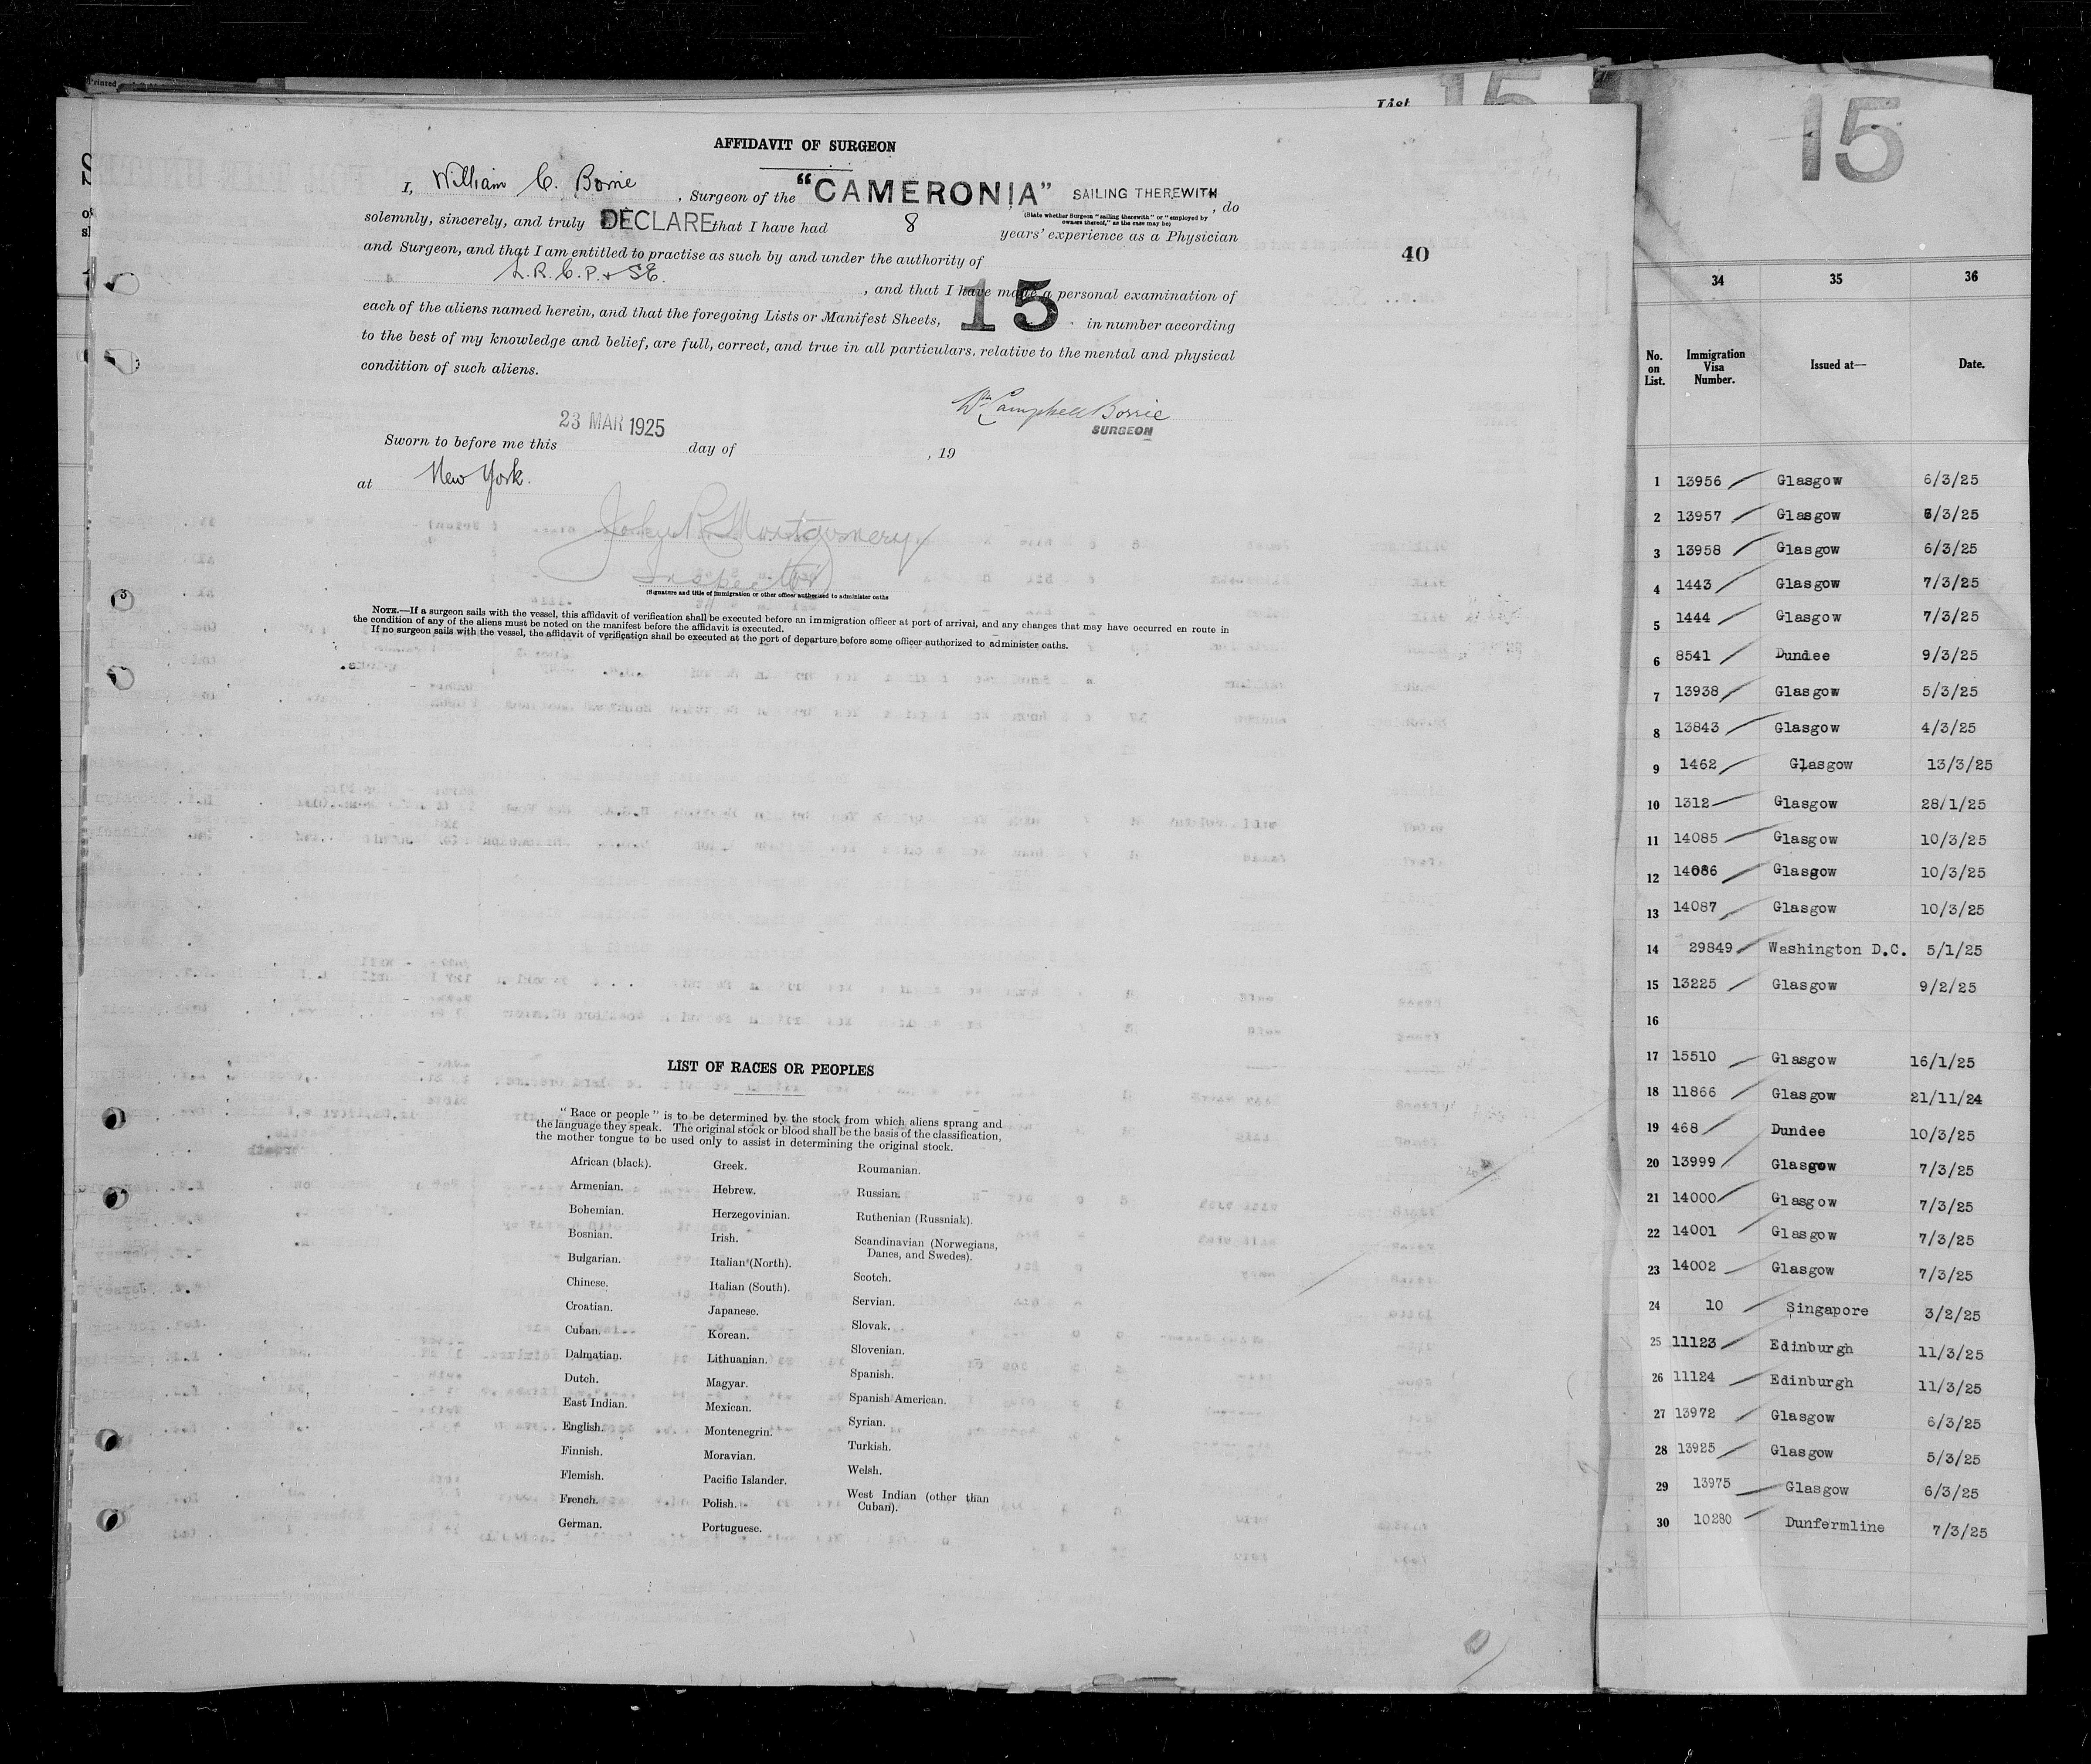 Printed
List 15
AFFIDAVIT OF SURGEON
I, William C. Borrie, Surgeon of the "CAMERONIA" SAILING THEREWITH, do
(State whether Surgeon "sailing therewith" or "employed by
owners thereof," as the case may be)
solemnly, sincerely, and truly DECLARE that I have had 8 years' experience as a Physician
and Surgeon, and that I am entitled to practise as such by and under the authority of
L.R.C.P. & S.E. , and that I have made a personal examination of
each of the aliens named herein, and that the foregoing Lists or Manifest Sheets, 15 in number according
to the best of my knowledge and belief, are full, correct, and true in all particulars, relative to the mental and physical
condition of such aliens.
40
Wm Campbell Borrie
SURGEON
Sworn to before me this 23 MAR 1925 day of , 19
at New York.
John R. Montgomery
Inspector
(Signature and title of immigration or other officer authorised to administer oaths
NOTE.—If a surgeon sails with the vessel, this affidavit of verification shall be executed before an immigration officer at port of arrival, and any changes that may have occurred en route in
the condition of any of the aliens must be noted on the manifest before the affidavit is executed.
If no surgeon sails with the vessel, the affidavit of verification shall be executed at the port of departure before some officer authorized to administer oaths.
3
LIST OF RACES OR PEOPLES
"Race or people" is to be determined by the stock from which aliens sprang and
the language they speak. The original stock or blood shall be the basis of the classification,
the mother tongue to be used only to assist in determining the original stock.
African (black).
Armenian.
Bohemian.
Bosnian.
Bulgarian.
Chinese.
Croatian.
Cuban.
Dalmatian.
Dutch.
East Indian.
English.
Finnish.
Flemish.
French.
German.
Greek.
Hebrew.
Herzegovinian.
Irish.
Italian (North).
Italian (South).
Japanese.
Korean.
Lithuanian.
Magyar.
Mexican.
Montenegrin.
Moravian.
Pacific Islander.
Polish.
Portuguese.
Roumanian.
Russian.
Ruthenian (Russniak).
Scandinavian (Norwegians,
Danes, and Swedes).
Scotch.
Servian.
Slovak.
Slovenian.
Spanish.
Spanish American.
Syrian.
Turkish.
Welsh.
West Indian (other than
Cuban).
15
34 35 36
No. on List. Immigration Visa Number. Issued at— Date.
1 13956 Glasgow 6/3/25
2 13957 Glasgow 6/3/25
3 13958 Glasgow 6/3/25
4 1443 Glasgow 7/3/25
5 1444 Glasgow 7/3/25
6 8541 Dundee 9/3/25
7 13938 Glasgow 5/3/25
8 13843 Glasgow 4/3/25
9 1462 Glasgow 13/3/25
10 1312 Glasgow 28/1/25
11 14085 Glasgow 10/3/25
12 14086 Glasgow 10/3/25
13 14087 Glasgow 10/3/25
14 29849 Washington D.C. 5/1/25
15 13225 Glasgow 9/2/25
16
17 15510 Glasgow 16/1/25
18 11866 Glasgow 21/11/24
19 468 Dundee 10/3/25
20 13999 Glasgow 7/3/25
21 14000 Glasgow 7/3/25
22 14001 Glasgow 7/3/25
23 14002 Glasgow 7/3/25
24 10 Singapore 3/2/25
25 11123 Edinburgh 11/3/25
26 11124 Edinburgh 11/3/25
27 13972 Glasgow 6/3/25
28 13925 Glasgow 5/3/25
29 13975 Glasgow 6/3/25
30 10280 Dunfermline 7/3/25